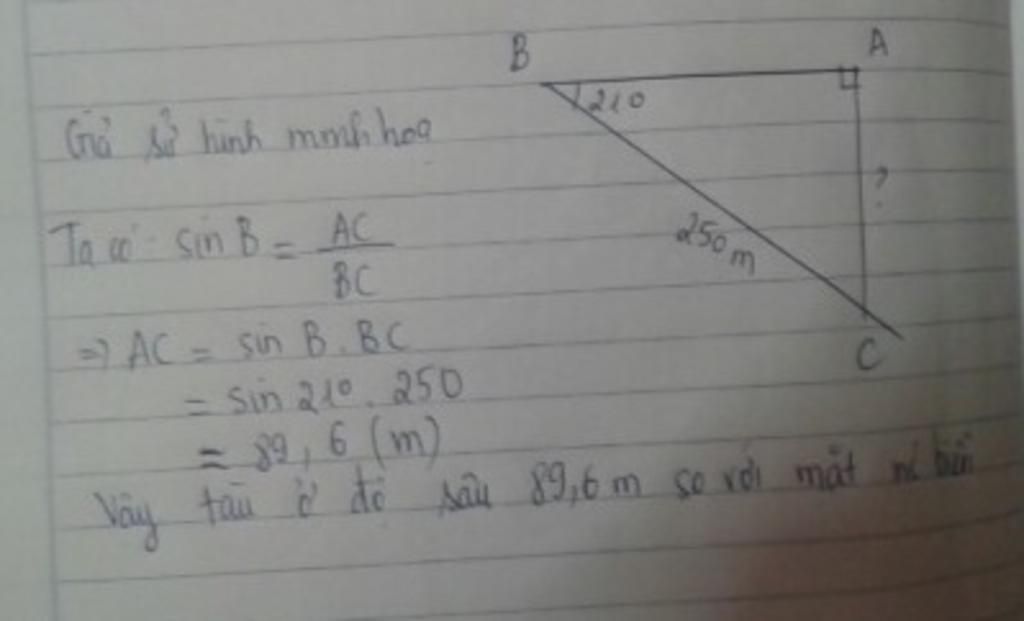 B
A
21°
Giả sử hình minh hoạ
?
Ta có: sin B = AC / BC
250m
=> AC = sin B . BC
C
= sin 21° . 250
= 89,6 (m)
Vậy tàu ở độ sâu 89,6m so với mặt nc biển